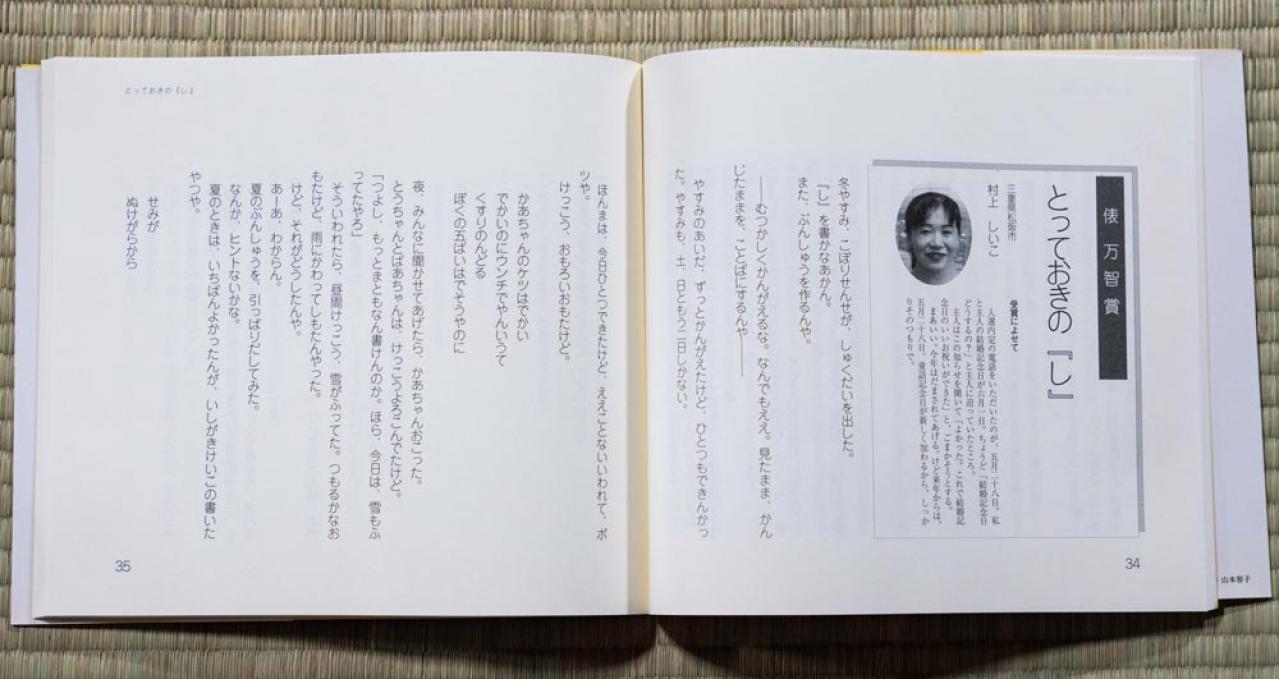 俵 万智賞
とっておきの『し』
三重県松阪市
村上 しいこ
受賞によせて
入選内定の電話をいただいたのが、五月二十八日。私
と主人の結婚記念日が六月一日。ちょうど「結婚記念日
どうするの？」と主人に迫っていたところ。
主人はこの知らせを聞いて「よかった。これで結婚記
念日のいいお祝いができた」と、ごまかそうとする。
まあいい。今年はだまされてあげる。けど来年からは、
五月二十八日、童話記念日が新しく加わるから、しっか
りそのつもりで。
冬やすみ、こぼりせんせが、しゅくだいを出した。
『し』を書かなあかん。
また、ぶんしゅうを作るんや。
――むつかしくかんがえるな。なんでもええ。見たまま、かん
じたままを、ことばにするんや――
やすみのあいだ、ずっとかんがえたけど、ひとつもできんかっ
た。やすみも、土、日ともう二日しかない。
34
山本容子
とっておきの『し』
ほんまは、今日ひとつできたけど、ええことないいわれて、ボ
ツや。
けっこう、おもろいおもたけど。
かあちゃんのケツはでかい
でかいのにウンチでやんいうて
くすりのんどる
ぼくの五ばいはでそうやのに
夜、みんなに聞かせてあげたら、かあちゃんおこった。
とうちゃんとばあちゃんは、けっこうよろこんでたけど。
「つよし、もっとまともなん書けんのか。ほら、今日は、雪もふ
ってたやろ」
そういわれたら、昼間けっこう、雪がふってた。つもるかなお
もたけど、雨にかわってしもたんやった。
けど、それがどうしたんや。
あーあ、わからん。
夏のぶんしゅうを、引っぱりだしてみた。
なんか、ヒントないかな。
夏のときは、いちばんよかったんが、いしがきけいこの書いた
やつや。
せみが
ぬけがらから
35